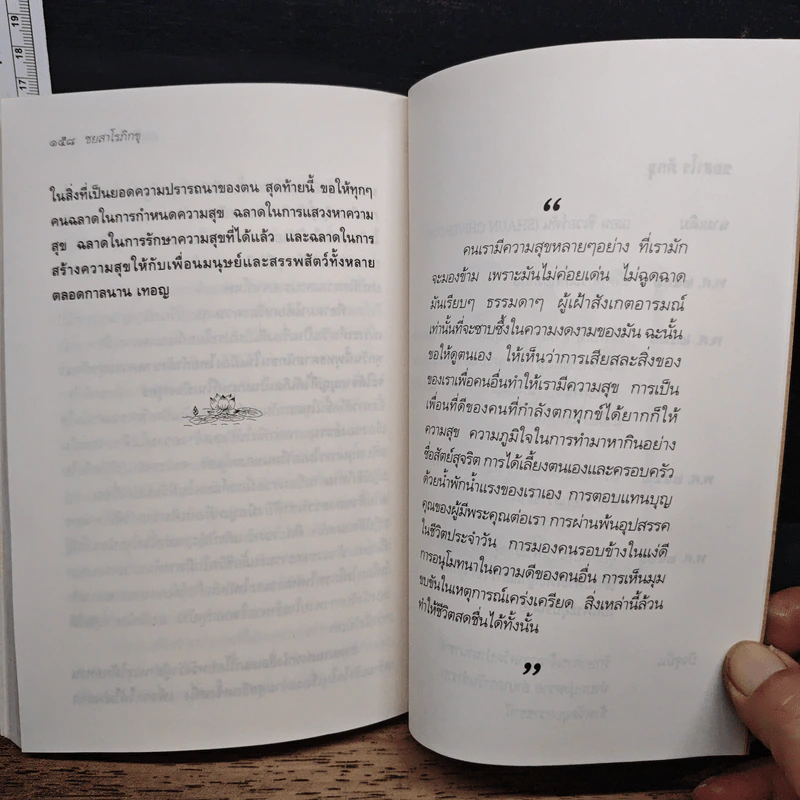 ๑๕๘ ชยสาโรภิกขุ
ในสิ่งที่เป็นยอดความปรารถนาของตน สุดท้ายนี้ ขอให้ทุกๆ
คนฉลาดในการกำหนดความสุข ฉลาดในการแสวงหาความ
สุข ฉลาดในการรักษาความสุขที่ได้แล้ว และฉลาดในการ
สร้างความสุขให้กับเพื่อนมนุษย์และสรรพสัตว์ทั้งหลาย
ตลอดกาลนาน เทอญ
“
คนเรามีความสุขหลายๆอย่าง ที่เรามัก
จะมองข้าม เพราะมันไม่ค่อยเด่น ไม่ฉูดฉาด
มันเรียบๆ ธรรมดาๆ ผู้เฝ้าสังเกตอารมณ์
เท่านั้นที่จะซาบซึ้งในความงดงามของมัน ฉะนั้น
ขอให้ดูตนเอง ให้เห็นว่าการเสียสละสิ่งของ
ของเราเพื่อคนอื่นทำให้เรามีความสุข การเป็น
เพื่อนที่ดีของคนที่กำลังตกทุกข์ได้ยากก็ให้
ความสุข ความภูมิใจในการทำมาหากินอย่าง
ซื่อสัตย์สุจริต การได้เลี้ยงตนเองและครอบครัว
ด้วยน้ำพักน้ำแรงของเราเอง การตอบแทนบุญ
คุณของผู้มีพระคุณต่อเรา การผ่านพ้นอุปสรรค
ในชีวิตประจำวัน การมองคนรอบข้างในแง่ดี
การอนุโมทนาในความดีของคนอื่น การเห็นมุม
ขบขันในเหตุการณ์เคร่งเครียด สิ่งเหล่านี้ล้วน
ทำให้ชีวิตสดชื่นได้ทั้งนั้น
”
19
18
17